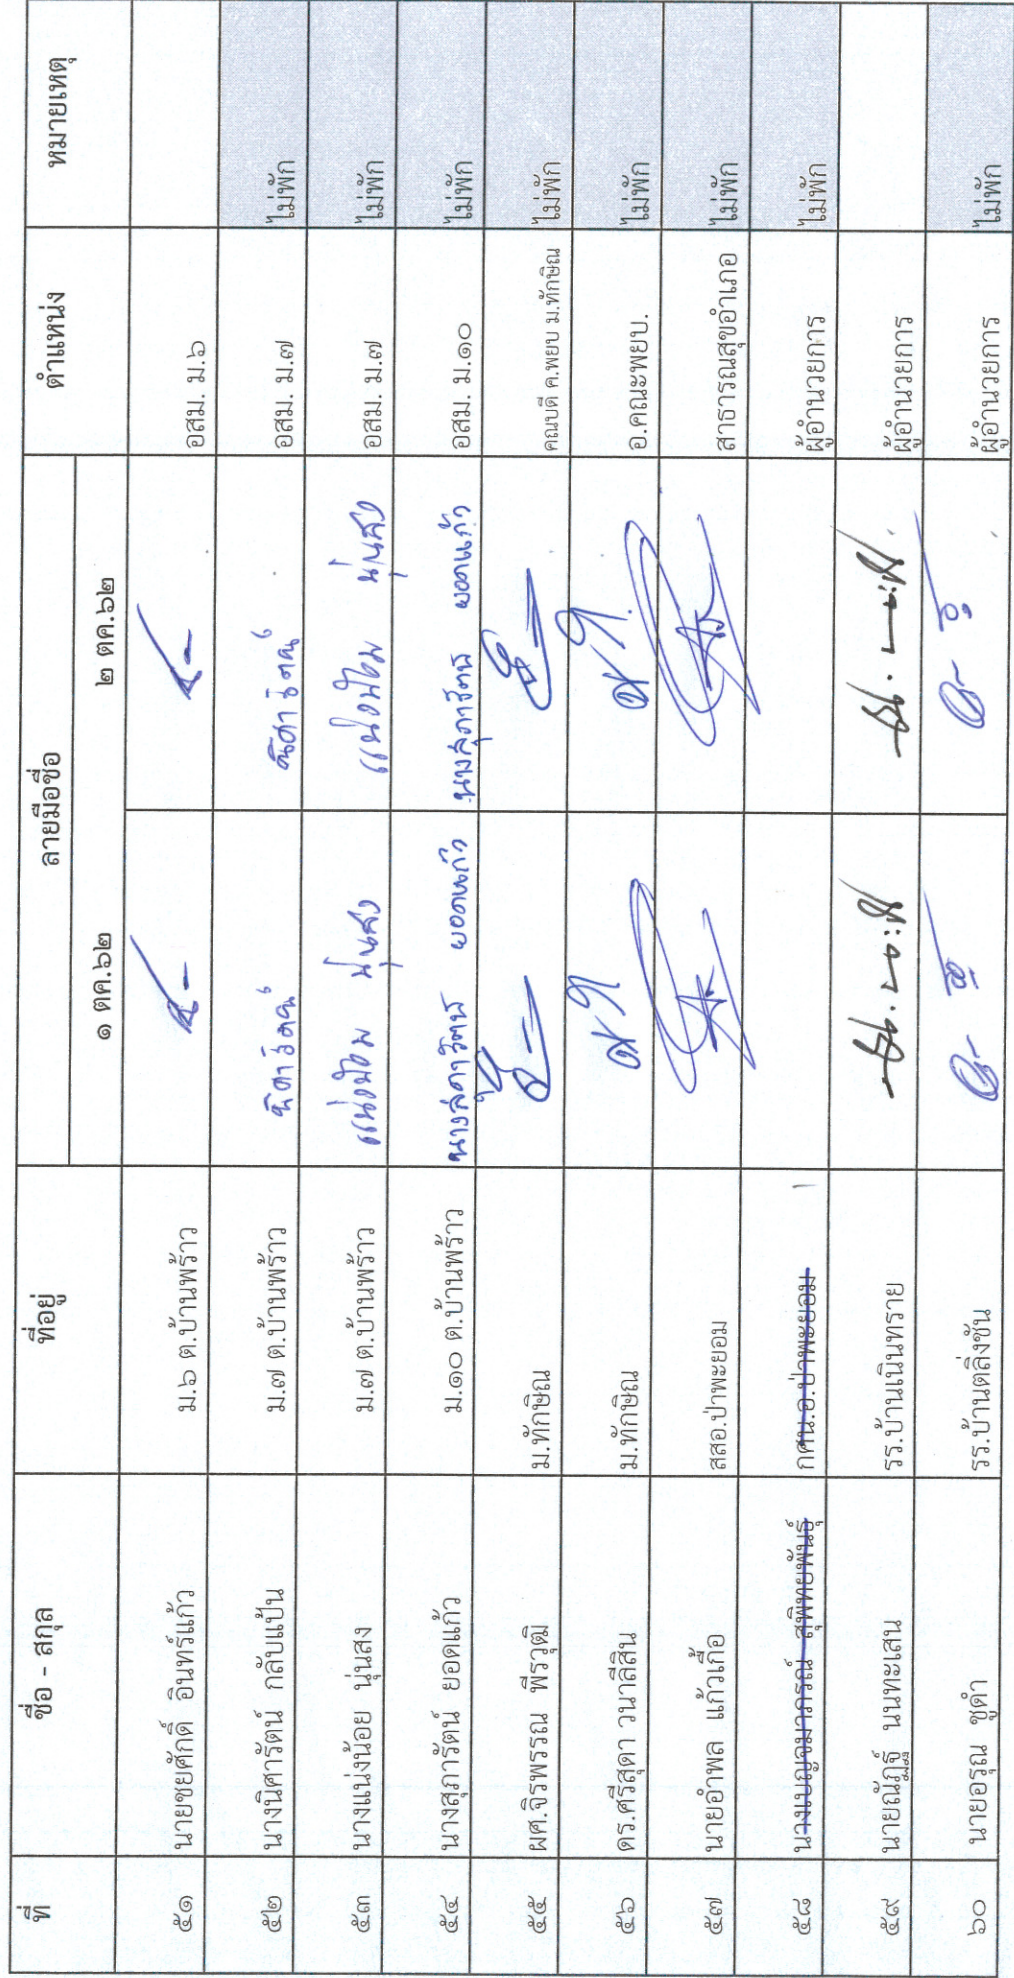 ที่ ชื่อ - สกุล ที่อยู่ ลายมือชื่อ ตำแหน่ง หมายเหตุ
๑ ตค.๖๒ ๒ ตค.๖๒
๕๑ นายชยศักดิ์ อินทร์แก้ว ม.๖ ต.บ้านพร้าว อสม. ม.๖
๕๒ นางนิศารัตน์ กลับแป้น ม.๗ ต.บ้านพร้าว นิศารัตน์ นิศารัตน์ อสม. ม.๗ ไม่พัก
๕๓ นางแน่งน้อย นุ่นสง ม.๗ ต.บ้านพร้าว แน่งน้อย นุ่นสง แน่งน้อย นุ่นสง อสม. ม.๗ ไม่พัก
๕๔ นางสุภารัตน์ ยอดแก้ว ม.๑๐ ต.บ้านพร้าว ยอดแก้ว ยอดแก้ว อสม. ม.๑๐ ไม่พัก
๕๕ ผศ.จิรพรรณ พีรวุฒิ ม.ทักษิณ คณบดี ค.พยบ ม.ทักษิณ ไม่พัก
๕๖ ดร.ศรีสุดา วนาลีสิน ม.ทักษิณ อ.คณะพยบ. ไม่พัก
๕๗ นายอำพล แก้วเกื้อ สสอ.ป่าพะยอม สาธารณสุขอำเภอ ไม่พัก
๕๘ นางเบญจมาภรณ์ สุพิทยพันธุ์ กศน.อ.ป่าพะยอม ผู้อำนวยการ ไม่พัก
๕๙ นายณัฏฐ์ นนทะเสน รร.บ้านเนินทราย ผู้อำนวยการ
๖๐ นายอรุณ ชูดำ รร.บ้านตลิ่งชัน ผู้อำนวยการ ไม่พัก